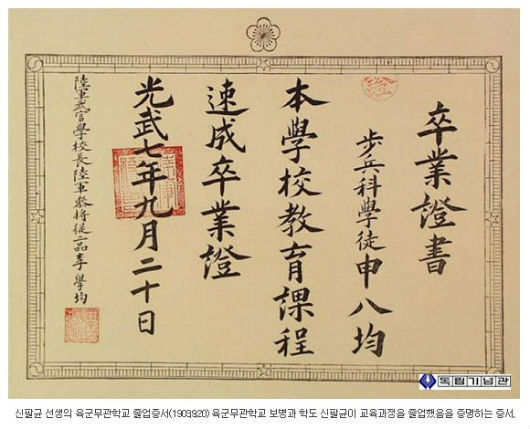 卒業證書
步兵科學徒申八均
本學校教育課程
速成卒業證
光武七年九月二十日
陸軍武官學校長陸軍參將從二品李學均
독립기념관
신팔균 선생의 육군무관학교 졸업증서(1903.9.20) 육군무관학교 보병과 학도 신팔균이 교육과정을 졸업했음을 증명하는 증서.